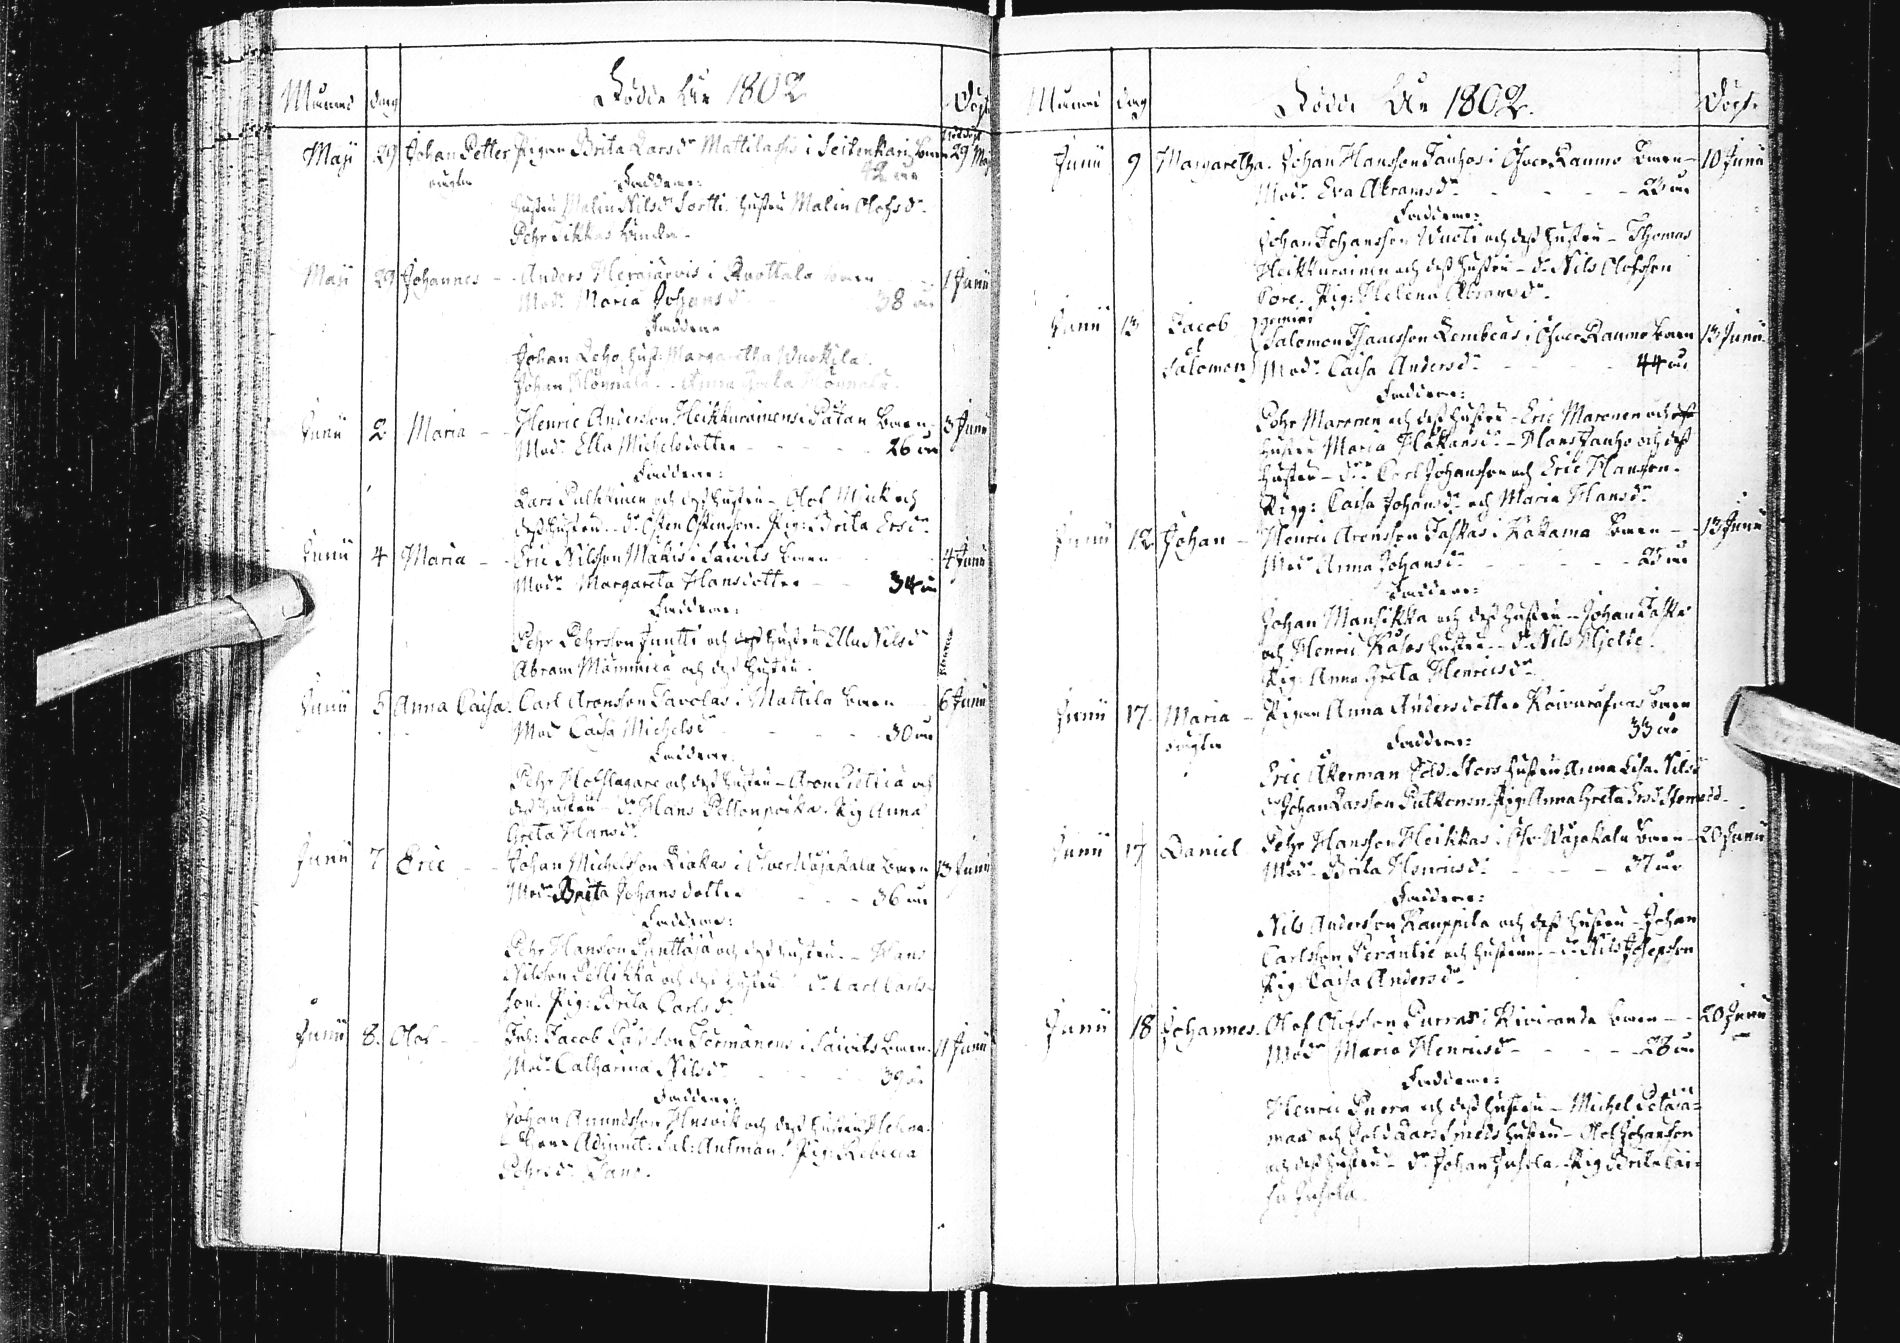 Månad dag Födde År 1802 Döpt
Maji 29 Johan Petter Pigan Brita Larsdr Mattilas i Seitenkari barn 29 Maj
oägta 42 år
Faddrar:
hustru Malin Nilsdr Portti. hustru Malin Olofsdr
Pehr
Maji 29 Johannes - Anders Herajärvis i Ruottala barn 1 Junii
Modr Maria Johansdr 38 år
Faddrar
Johan Leho, hust: Margaretha
Johan Anna Greta
Junii 2 Maria - Henric Anderson Heikkurainens i Påtan barn 3 Junii
Modr Ella Michelsdotter - - - 26 år
Faddrar:
Lars Pulkkinen och dess hustru - Olof Muck och
dess hustru - dr Östen Östenson. Pig: Brita Ersdr
Junii 4 Maria - Eric Nilsson Makis i Saivits barn 4 Junii
Modr Margareta Hansdotter - - 34 år
Faddrar:
Pehr Pehrsson Juntti och dess hustru Ella Nilsdr
Abram Mämmilä och dess hustru.
Junii 5 Anna Caisa. Carl Aronsson Tavolas i Mattila barn 6 Junii
Mod Caisa Michelsdr - - - 30 år
Faddrar:
Pehr Hofslagare och dess hustru - Aron och
dess hustru - dr Hans Pellonpoika. Pig Anna
Greta Hansdr
Junii 7 Eric - - Johan Michelsson Liakas i Öfver Wojakala barn 13 Junii
Modr Brita Johansdotter - - 36 år
Faddrar:
Pehr Hanson och dess hustru - Hans
Nilsson Pellikka och dess hustru dr Carl Carls-
son. Pig: Brita Carlsdr
Junii 8. Olof - Inh: Jacob Pålsson Tormänens i Saivits barn. 11 Junii
Modr Catharina Nilsdr - - - 39 år
Faddrar:
Johan Amundsson och dess hustru Helena.
Herr Adjunct: Sal: Antman. Pig: Rebecca
Pehrsdr
Månad dag Födde År 1802. Döpt.
Junii 9 Margaretha. Johan Hansson Janhos i Öfver Raumo barn - 10 Junii
Modr Eva Abramsdr - - - 23 år
Faddrar:
Johan Johansson Wuoti och dess hustru - Thomas
Heikkurainen och dess hustru - dr Nils Olofsson
Pore. Pig: Helena Abramsdr
Junii 13 Jacob gemini
et Salomon Isaacsson Lembeas i Öfver Raumo barn 13 Junii
Salomon Modr Caisa Andersdr - - - 44 år
Faddrar:
Pehr Maronen och dess hustru - Eric Maronen och dess
hustru Maria Håkansdr - Hans Janho och dess
hustru - drr Carl Johansson och Eric Hansson.
Pigg: Caisa Johansdr och Maria Hansdr
Junii 12 Johan - Henric Aronsson Taskas i Kakama barn - 13 Junii
Modr Anna Johansdr - - - 25 år
Faddrar:
Johan Mansikka och dess hustru - Johan Taska
och Henric hustru - dr Nils Hjelte.
Pig: Anna Greta Henricsdr
Junii 17. Maria - Pigan Anna Andersdotter barn
oägta 33 år
Faddrar:
Eric Åkerman Sold: Stors hustru Anna Lisa Nilsd
dr Johan Larsson Pulkonen. Pig: Anna Greta Ersd
Junii 17 Daniel Pehr Hansson Heikkas i Öfr Wojakala barn - 20 Junii
Modr Brita Henricsdr - - - 37 år
Faddrar:
Nils Anderson Kauppila och dess hustru - Johan
Carlsson Perantie och hustrun - dr Nils Josephson
Pig: Caisa Andersdr
Junii 18 Johannes. Olof Olofsson Purras i Kiviranda barn - 20 Junii
Modr Maria Henricsdr - - - 28 år
Faddrar:
Henric Pnera och dess hustru - Michel
och Sold Lars hustru - Olof Johansson
och dess hustru - dr Johan Juhola. Pig Brita Cai-
sa Juhola.